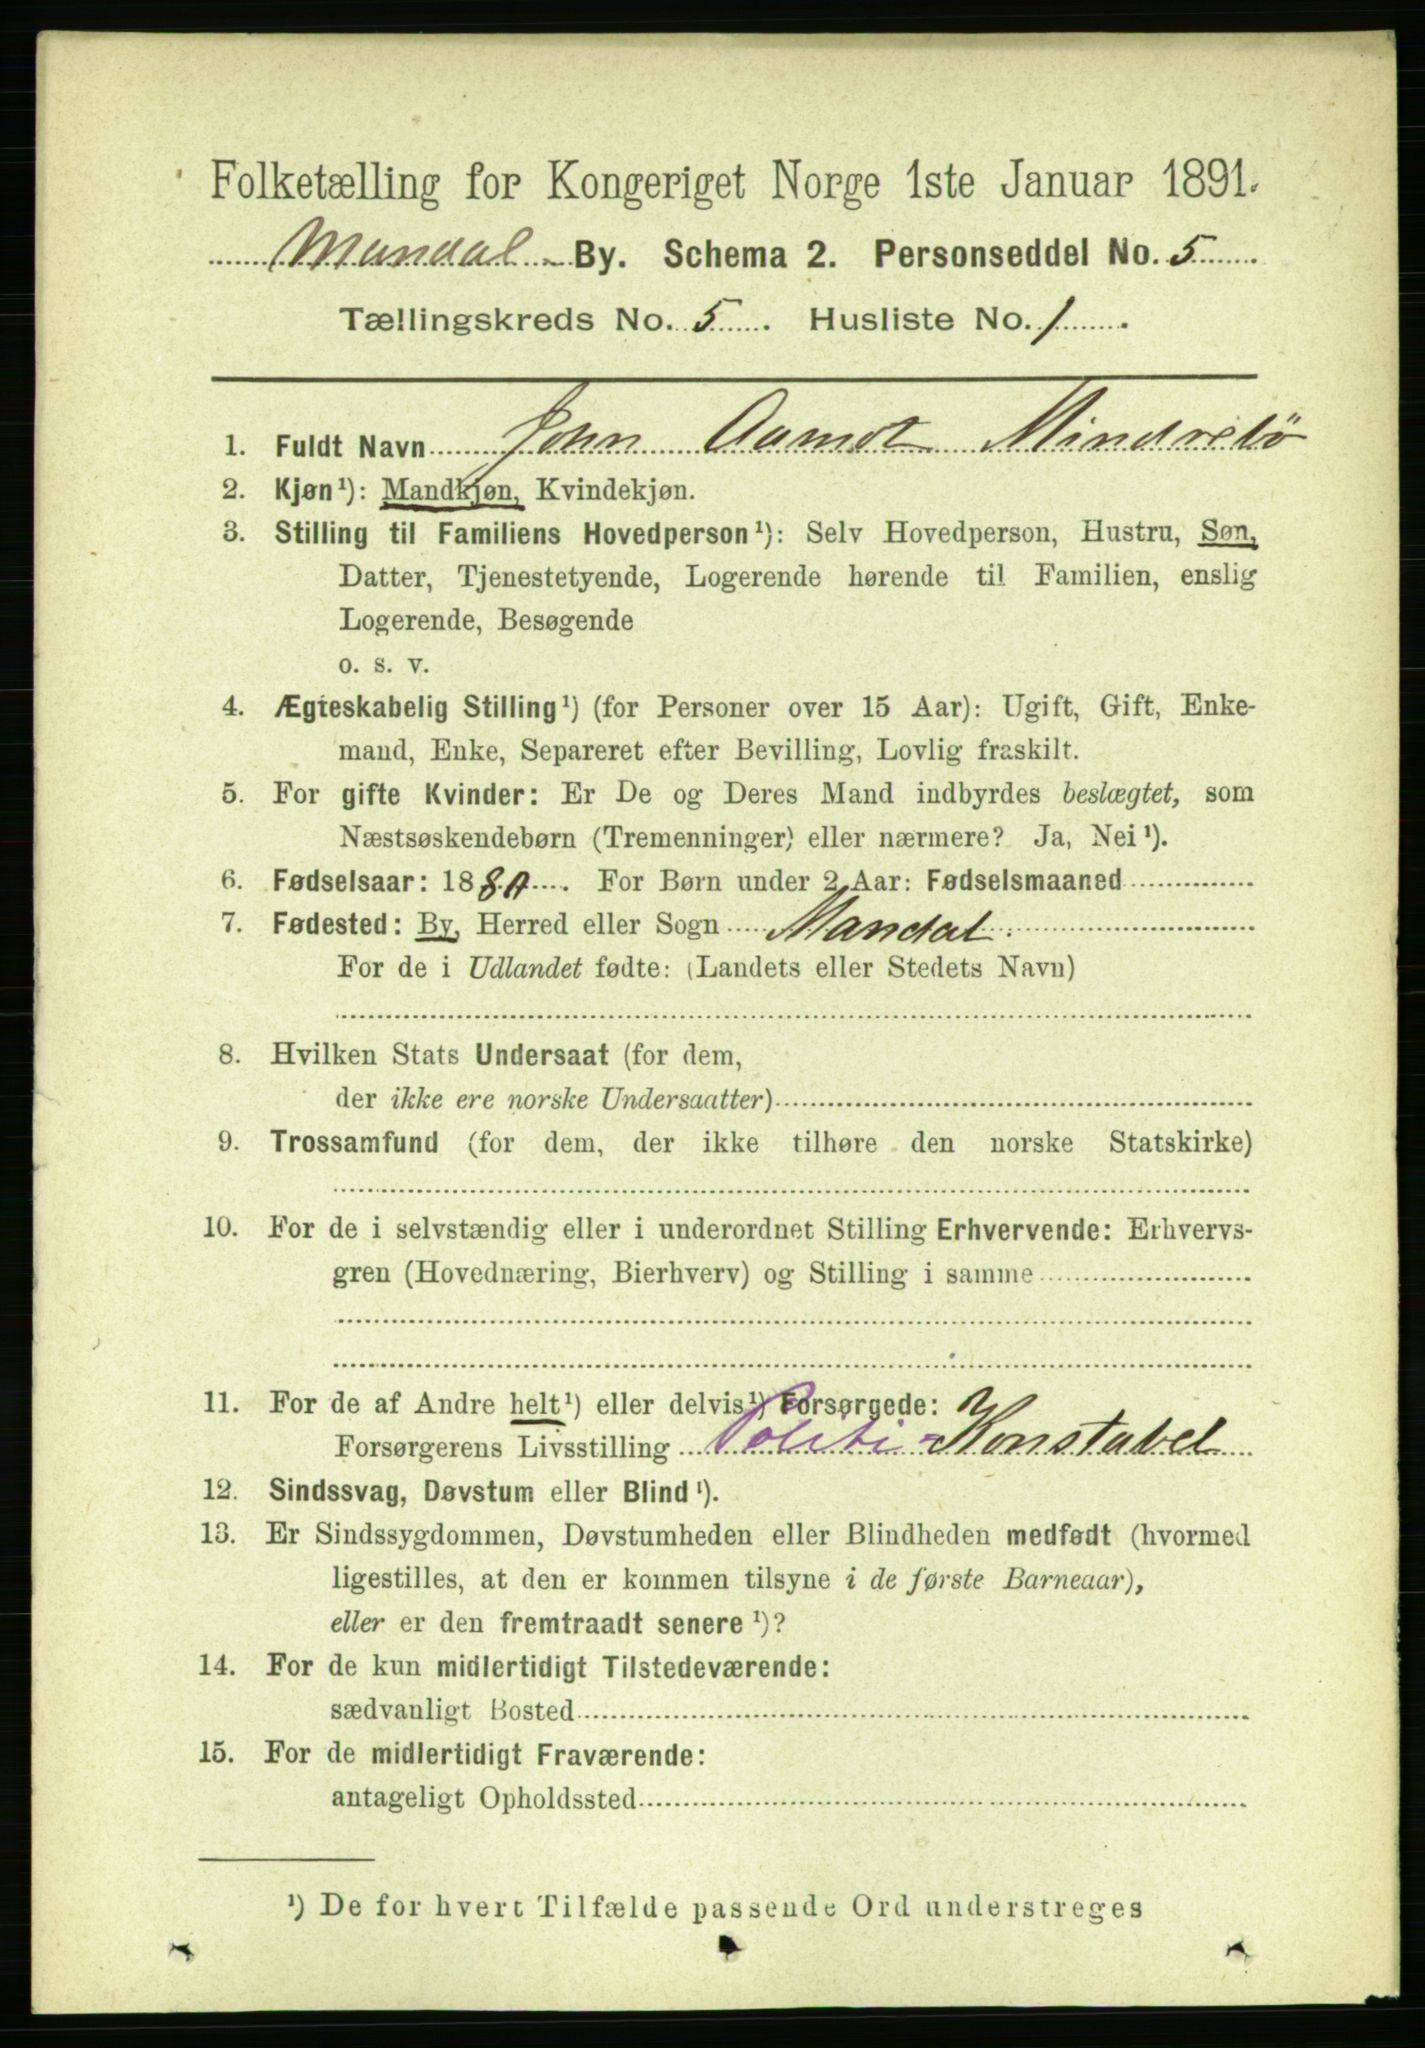 Folketælling for Kongeriget Norge 1ste Januar 1891.
Mandal By. Schema 2. Personseddel No. 5
Tællingskreds No. 5. Husliste No. 1.
1. Fuldt Navn John Aamot Mindrebö
2. Kjøn¹): Mandkjøn, Kvindekjøn.
3. Stilling til Familiens Hovedperson¹): Selv Hovedperson, Hustru, Søn,
Datter, Tjenestetyende, Logerende hørende til Familien, enslig
Logerende, Besøgende
o. s. v.
4. Ægteskabelig Stilling¹) (for Personer over 15 Aar): Ugift, Gift, Enke-
mand, Enke, Separeret efter Bevilling, Lovlig fraskilt.
5. For gifte Kvinder: Er De og Deres Mand indbyrdes beslægtet, som
Næstsøskendebørn (Tremenninger) eller nærmere? Ja, Nei¹).
6. Fødselsaar: 18 . For Børn under 2 Aar: Fødselsmaaned
7. Fødested: By, Herred eller Sogn Mandal.
For de i Udlandet fødte: (Landets eller Stedets Navn)
8. Hvilken Stats Undersaat (for dem,
der ikke ere norske Undersaatter)
9. Trossamfund (for dem, der ikke tilhøre den norske Statskirke)
10. For de i selvstændig eller i underordnet Stilling Erhvervende: Erhvervs-
gren (Hovednæring, Bierhverv) og Stilling i samme
11. For de af Andre helt¹) eller delvis¹) Forsørgede:
Forsørgerens Livsstilling Politi-Konstabel
12. Sindssvag, Døvstum eller Blind¹).
13. Er Sindssygdommen, Døvstumheden eller Blindheden medfødt (hvormed
ligestilles, at den er kommen tilsyne i de første Barneaar),
eller er den fremtraadt senere¹)?
14. For de kun midlertidigt Tilstedeværende:
sædvanligt Bosted
15. For de midlertidigt Fraværende:
antageligt Opholdssted
¹) De for hvert Tilfælde passende Ord understreges